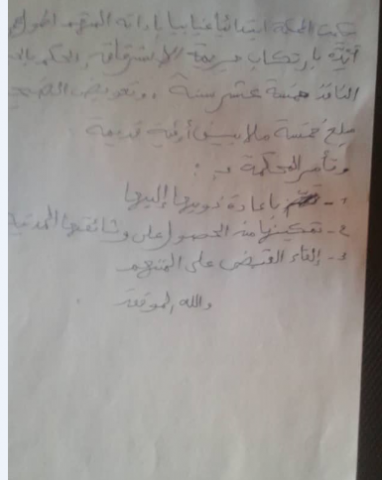 حكمت المحكمة ابتدائيا غيابيا بإدانة المتهم المولى
أنّه بارتكاب جريمة الاسترقاق، والحكم بالسجن
النافذ خمسة عشر سنة، وتعويض الضحية
مبلغ خمسة ملايين أوقية قديمة
وتأمر المحكمة بـ:
1- بإعادة ذويها إليها
2- تمكينها من الحصول على وثائقها المدنية
3- إلقاء القبض على المتهم
والله الموفق